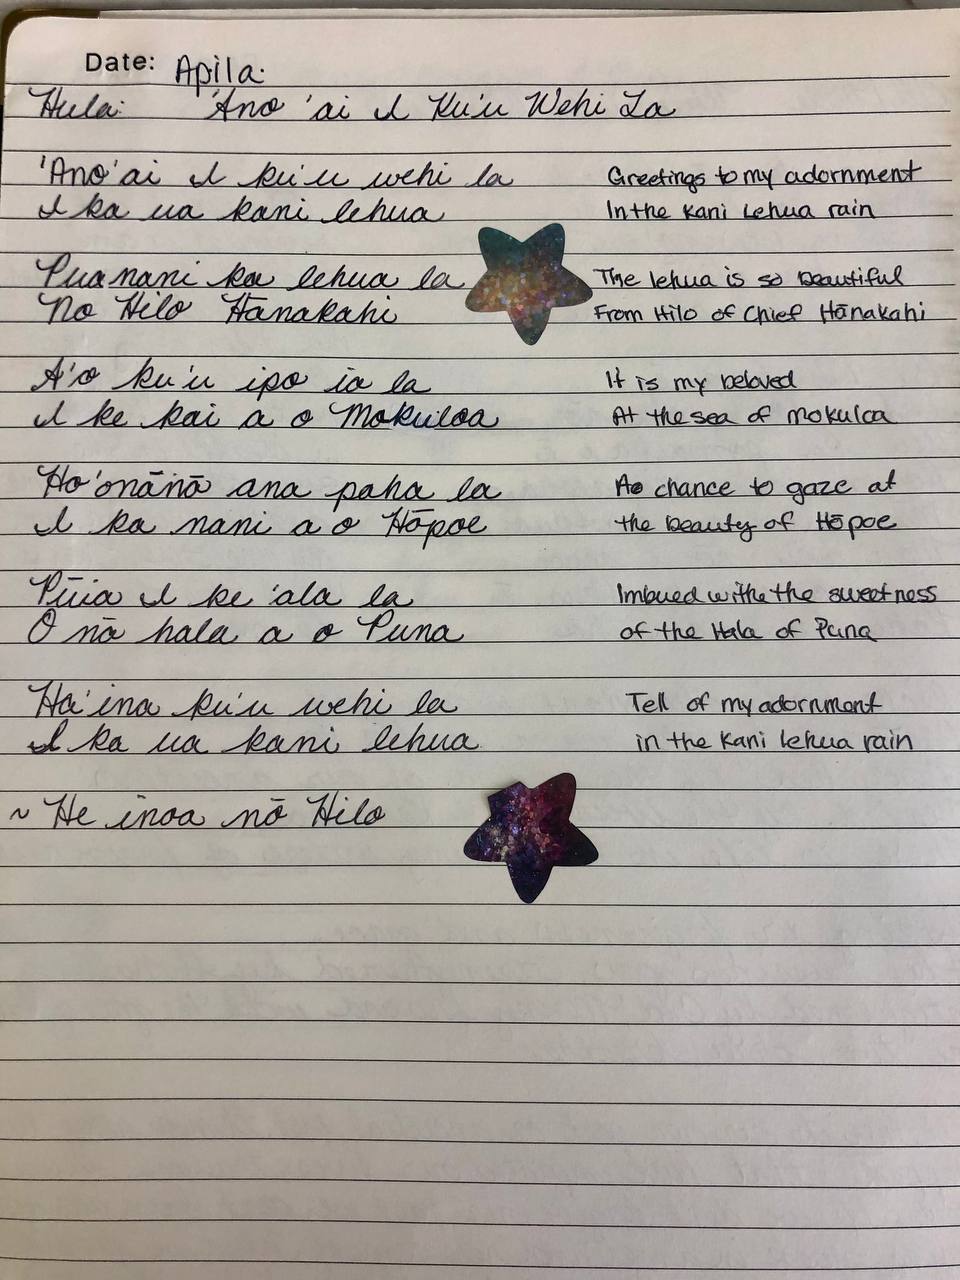 Date: Apila.
Hula: 'Ano 'ai I Ku'u Wehi La
'Ano'ai I ku'u wehi la Greetings to my adornment
I ka ua kani lehua In the Kani Lehua rain
Pua nani ka lehua la The lehua is so beautiful
No Hilo Hānakahi From Hilo of Chief Hānakahi
A'o ku'u ipo ia la It is my beloved
I ke kai a o Mokuloa At the sea of Mokuloa
Ho'onānā ana paha la A chance to gaze at
I ka nani a o Hōpoe the beauty of Hōpoe
Pūia I ke 'ala la Imbued withe the sweetness
O nā hala a o Puna of the Hala of Puna
Ha'ina ku'u wehi la Tell of my adornment
I ka ua kani lehua. in the Kani lehua rain
~ He inoa nō Hilo